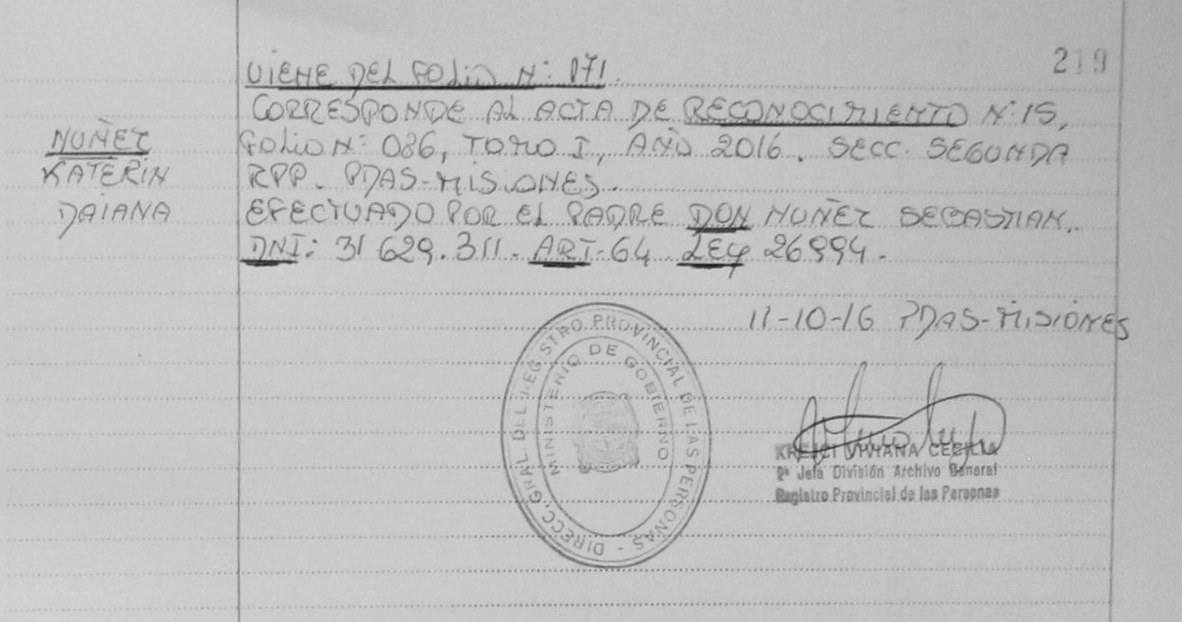 219
VIENE DEL FOLIO N: 171.
CORRESPONDE AL ACTA DE RECONOCIMIENTO N: 15,
FOLIO N: 086, TOMO I, AÑO 2016. SECC. SEGUNDA
RPP. PDAS-MISIONES.
EFECTUADO POR EL PADRE DON NUÑEZ SEBASTIAN.
DNI: 31 629.311. ART-64 LEY 26994.
NUÑEZ
KATERIN
DAIANA
11-10-16 PDAS-MISIONES
DIRECC. GRAL. DEL REGISTRO PROVINCIAL DE LAS PERSONAS -
MINISTERIO DE GOBIERNO
VIVIANA CECILIA
2ª Jefa División Archivo General
Registro Provincial de las Personas